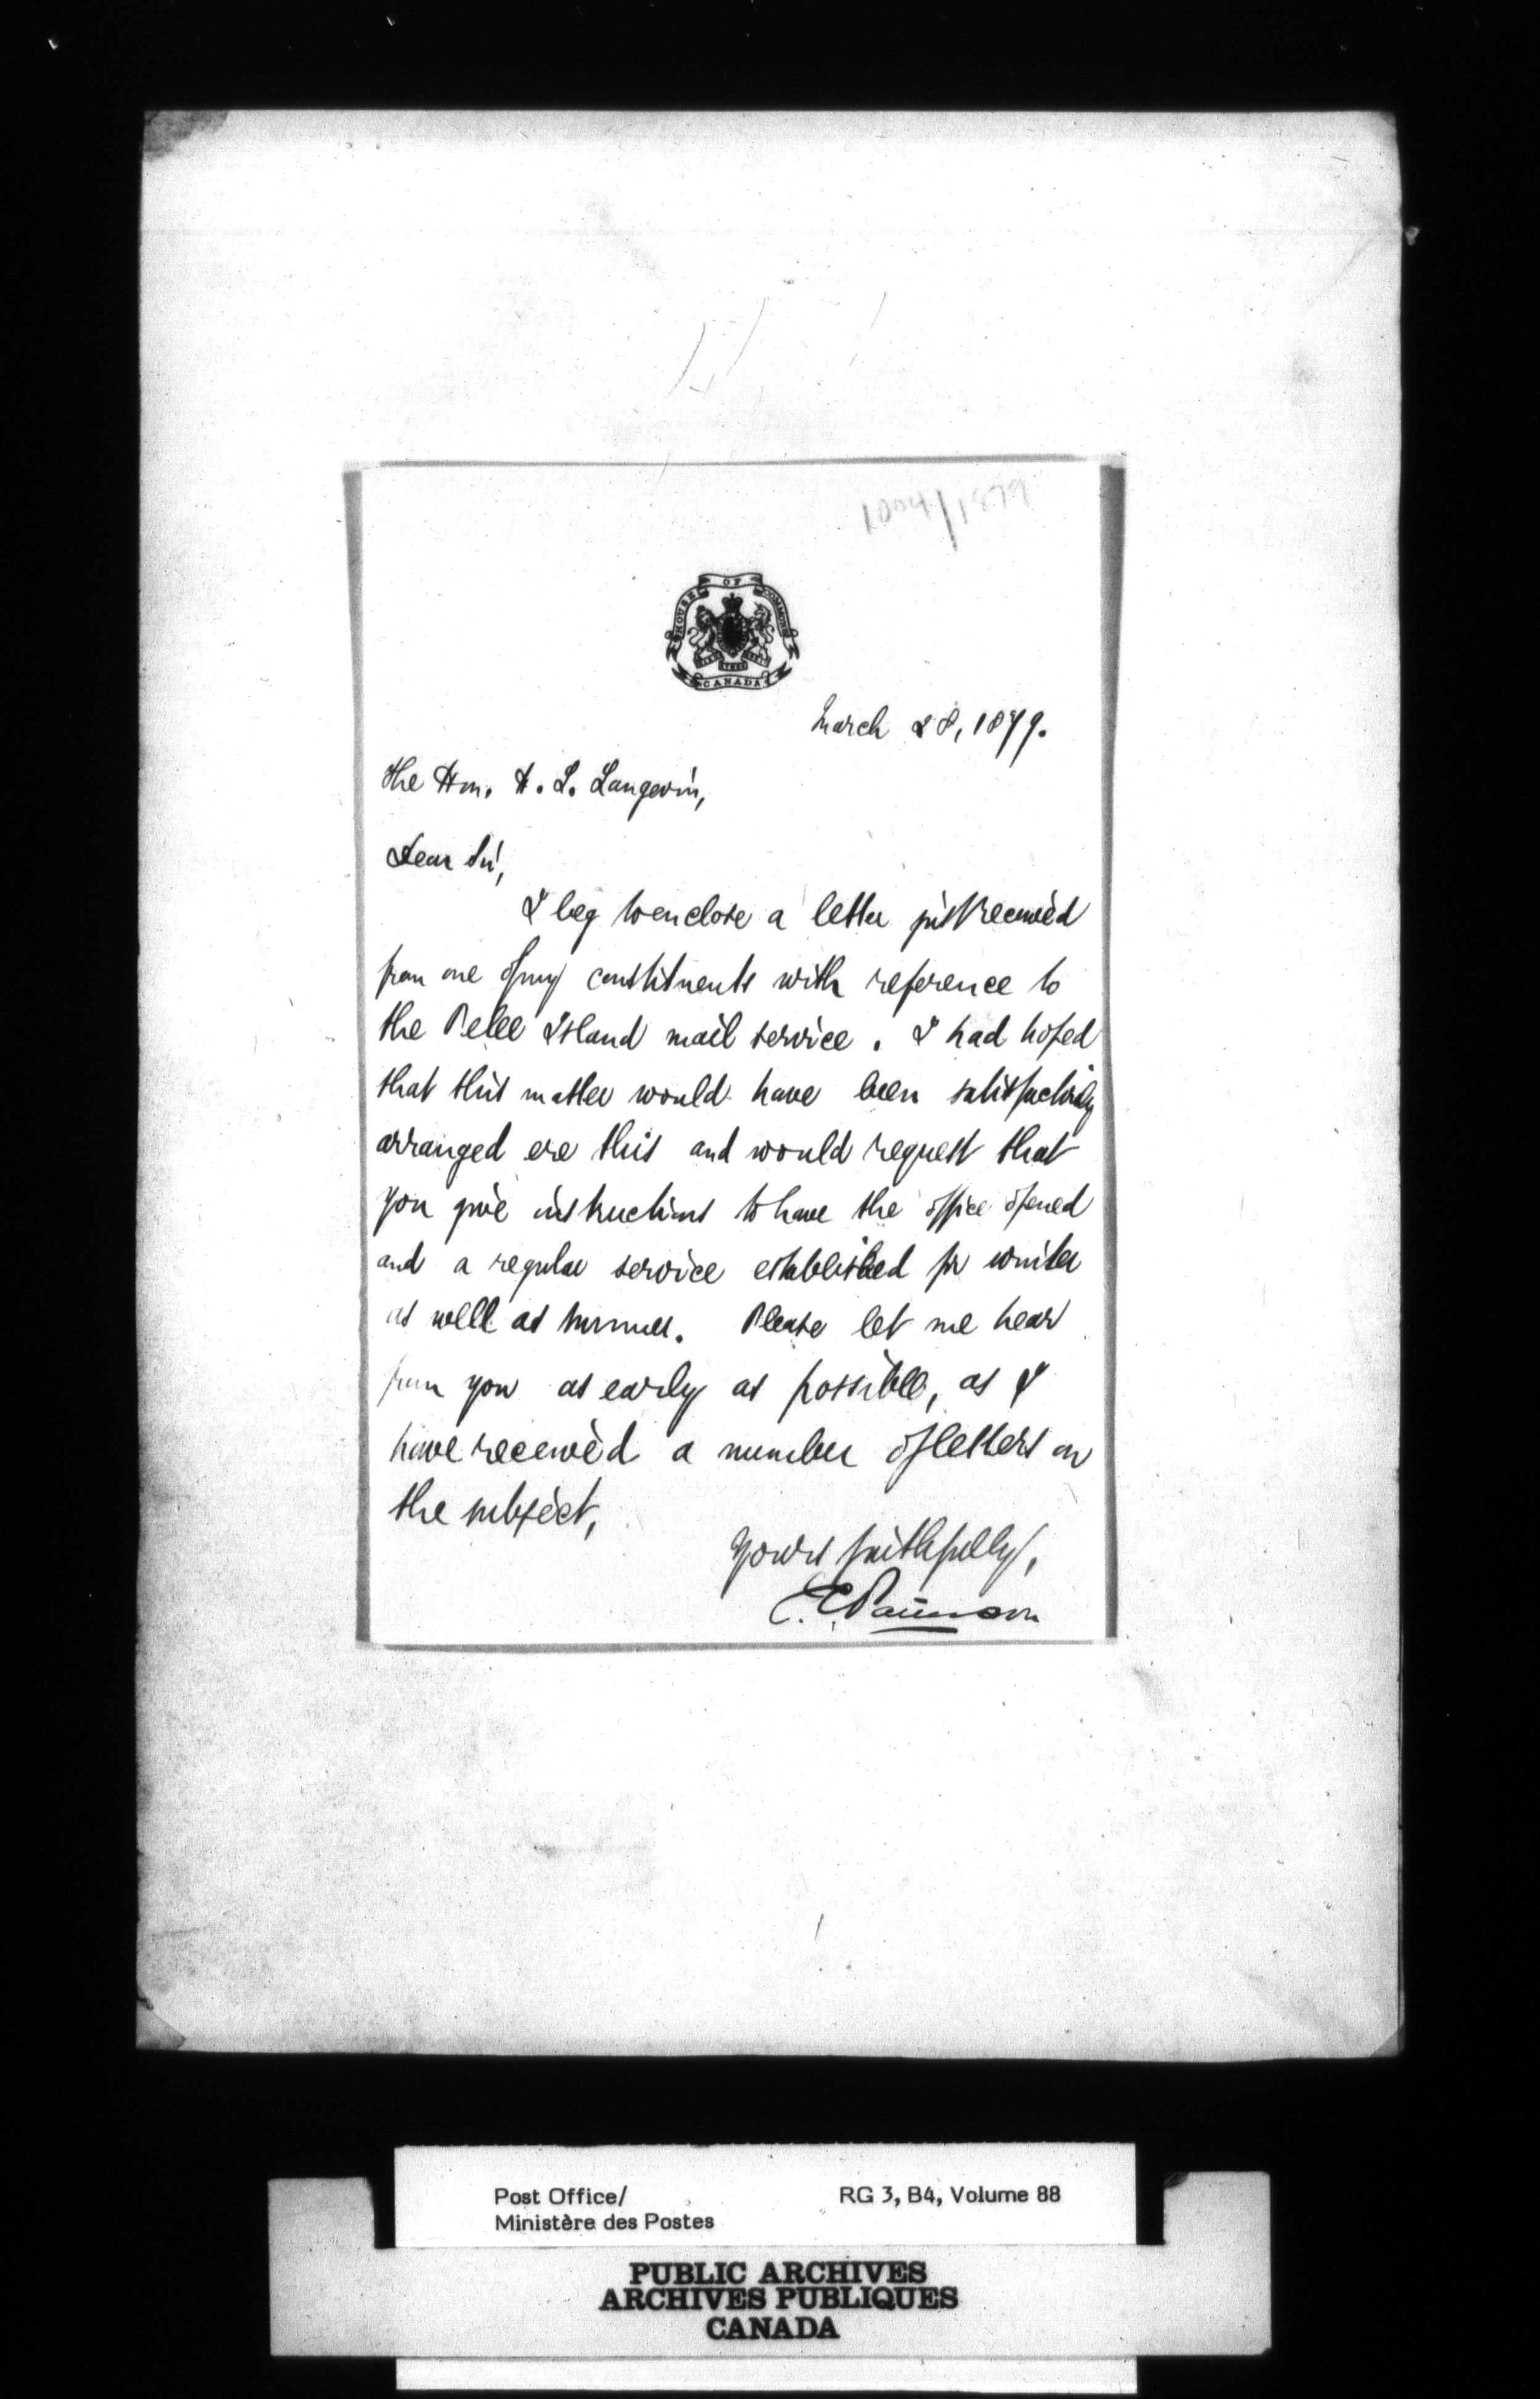 HOUSE OF COMMONS
CANADA
March 28, 1879.
The Hon. H. L. Langevin,
Dear Sir,
I beg to enclose a letter just received
from one of my constituents with reference to
the Pelee Island mail service. I had hoped
that this matter would have been satisfactorily
arranged ere this and would request that
you give instructions to have the office opened
and a regular service established for winter
as well as summer. Please let me hear
from you as early as possible, as I
have received a number of letters on
the subject,
Yours faithfully,
Post Office/
Ministère des Postes
RG 3, B4, Volume 88
PUBLIC ARCHIVES
ARCHIVES PUBLIQUES
CANADA